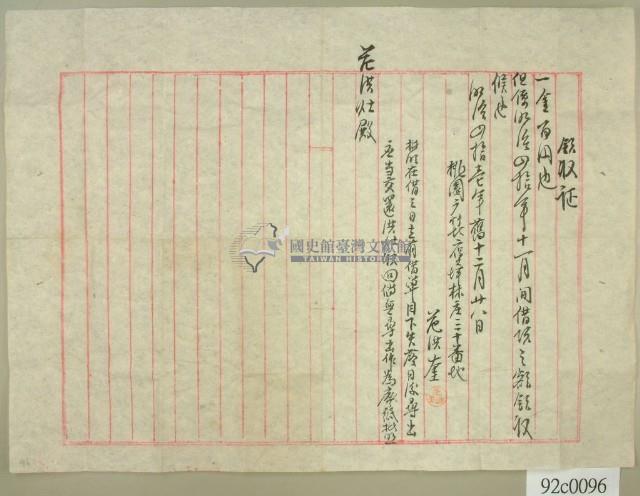 領收証
一金百円也
但係明治四拾年十一月間借項之額領收
候也
明治四拾壱年舊十二月廿八日
桃園廳竹北二堡坪林庄三十番地
范洪奎
批明在借之日立前借單目下失落日後尋出
應当交還洪灶收回倘無尋出作為廢紙批照
范洪灶殿
國史館臺灣文獻館
TAIWAN HISTORICA
92c0096